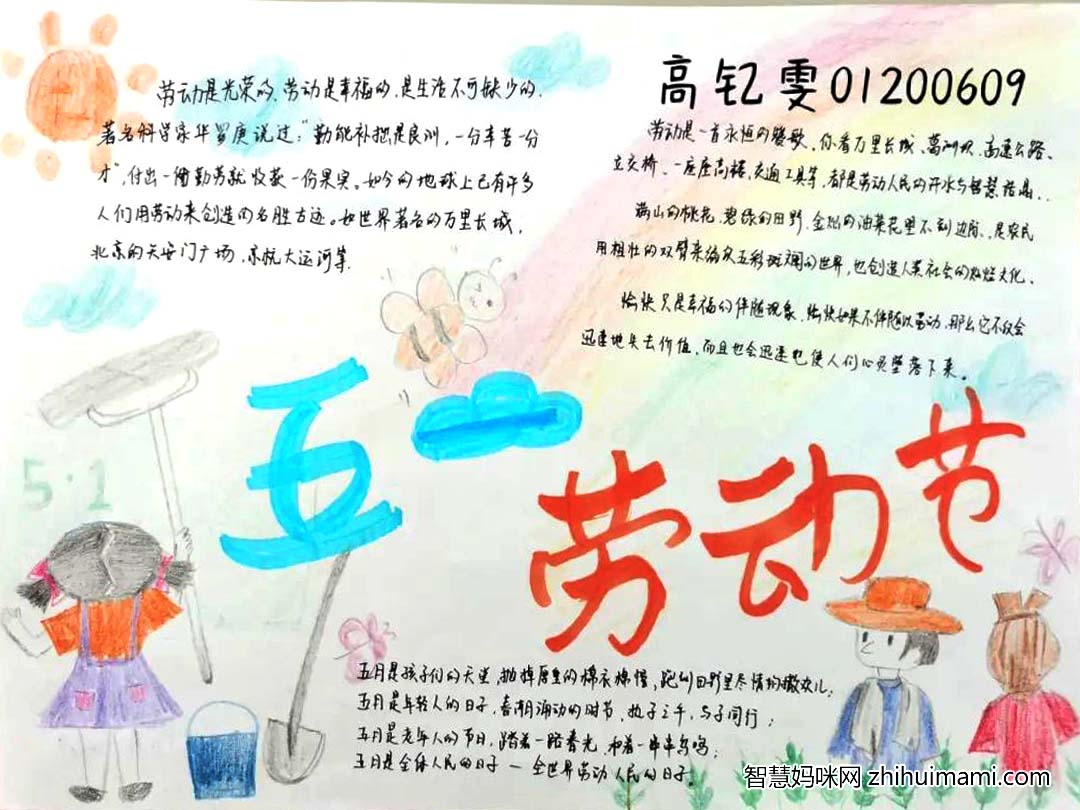 劳动是光荣的,劳动是幸福的,是生活不可缺少的,
著名科学家华罗庚说过:"勤能补拙是良训,一分辛苦一分
才",付出一份勤劳就收获一份果实。如今的地球上已有许多
人们用劳动来创造的名胜古迹。如世界著名的万里长城,
北京的天安门广场,京杭大运河等.
高钇雯01200609
劳动是一首永恒的赞歌。你看万里长城、葛洲坝、高速公路、
立交桥、一座座高楼,交通工具等,都是劳动人民的汗水与智慧结晶..
满山的桃花,碧绿的田野,金灿的油菜花望不到边际,是农民
用粗壮的双臂来编织五彩斑斓的世界,也创造人类社会的灿烂文化、
愉快只是幸福的伴随现象、愉快如果不伴随以劳动,那么它不仅会
迅速地失去价值,而且也会迅速也使人们心灵堕落下来。
5·1
五一
劳动节
五月是孩子们的天堂,抛掉厚重的棉衣棉帽,跑到田野里尽情的撒欢儿;
五月是年轻人的日子,春潮涌动的时节,执子之手,与子同行;
五月是老年人的节日,踏着一路春光,和着一串串鸟鸣;
五月是全体人民的日子—全世界劳动人民的日子。
智慧妈咪网 zhihuimami.com